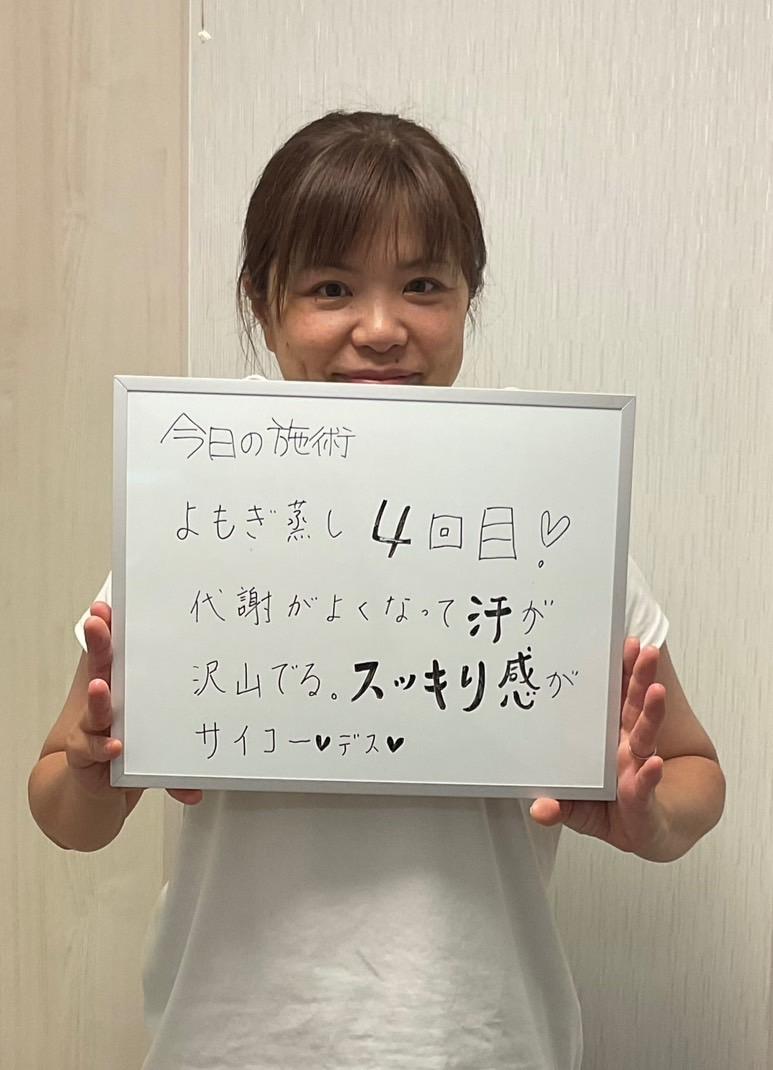 今日の施術
よもぎ蒸し 4回目♡!
代謝がよくなって汗が
沢山でる。スッキリ感が
サイコー♥デス♥